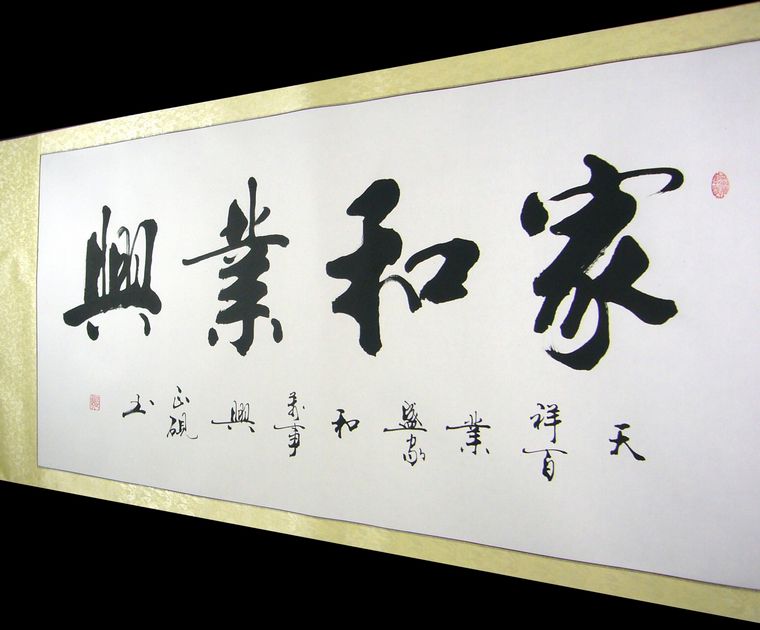 家和業興
天祥百業盛家和萬事興
正硯